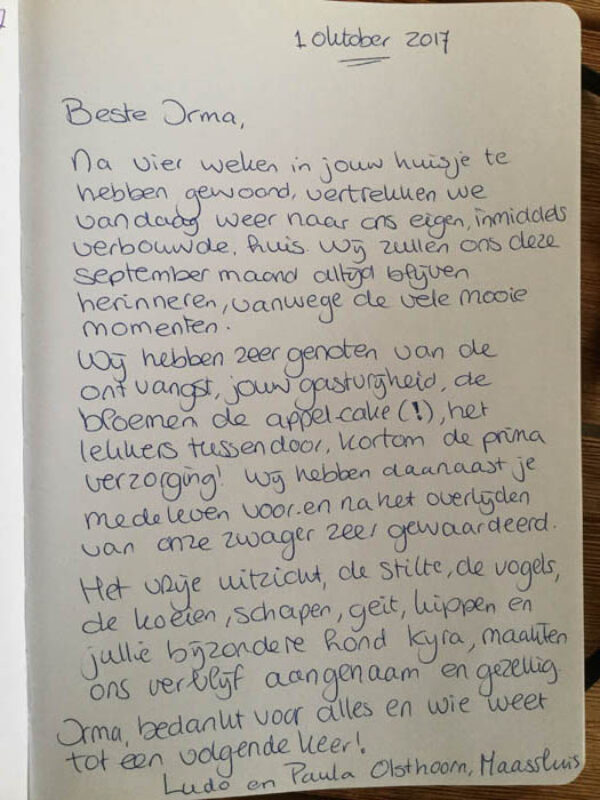 1 Oktober 2017
Beste Irma,
Na vier weken in jouw huisje te
hebben gewoond, vertrekken we
vandaag weer naar ons eigen, inmiddels
verbouwde, huis. Wij zullen ons deze
september maand altijd blijven
herinneren, vanwege de vele mooie
momenten.
Wij hebben zeer genoten van de
ontvangst, jouw gastvrijheid, de
bloemen de appel-cake (!), het
lekkers tussendoor, kortom de prima
verzorging! Wij hebben daarnaast je
medeleven voor- en na het overlijden
van onze zwager zeer gewaardeerd.
Het vrije uitzicht, de stilte, de vogels,
de koeien, schapen, geit, kippen en
jullie bijzondere hond Kyra, maakten
ons verblijf aangenaam en gezellig.
Irma, bedankt voor alles en wie weet
tot een volgende keer!
Ludo en Paula Olsthoorn, Maassluis